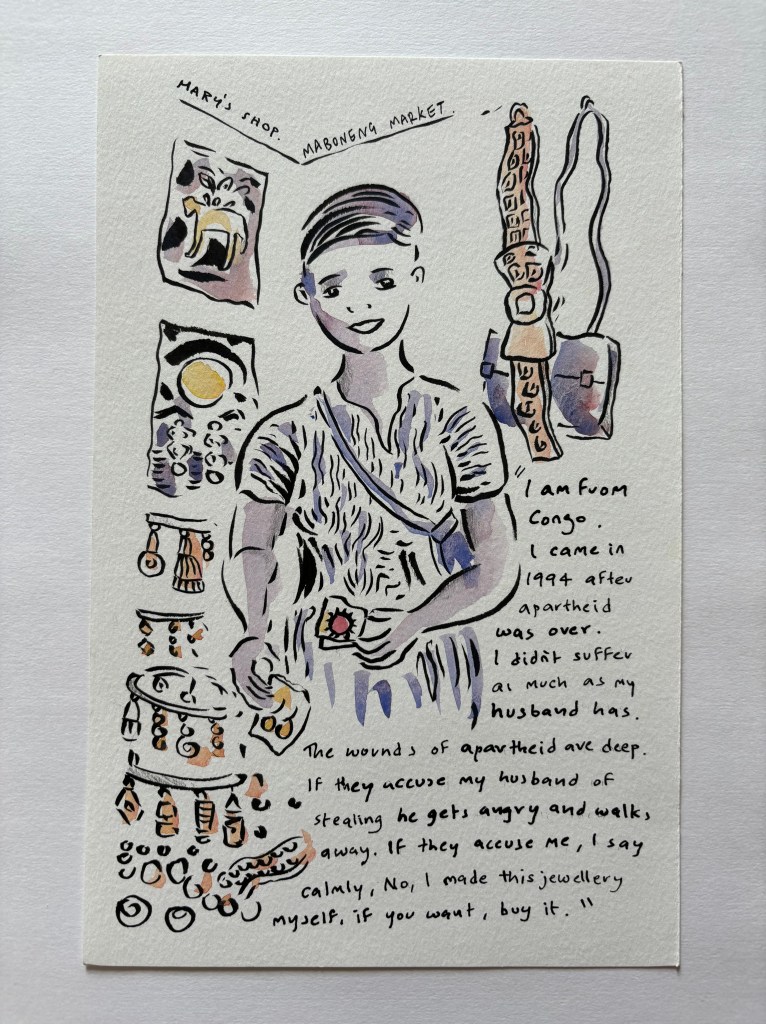 MARY'S SHOP.
MABONENG MARKET.
"I am from
Congo.
I came in
1994 after
apartheid
was over.
I didn't suffer
as much as my
husband has.
The wounds of apartheid are deep.
If they accuse my husband of
stealing he gets angry and walks
away. If they accuse me, I say
calmly, No, I made this jewellery
myself, if you want, buy it."